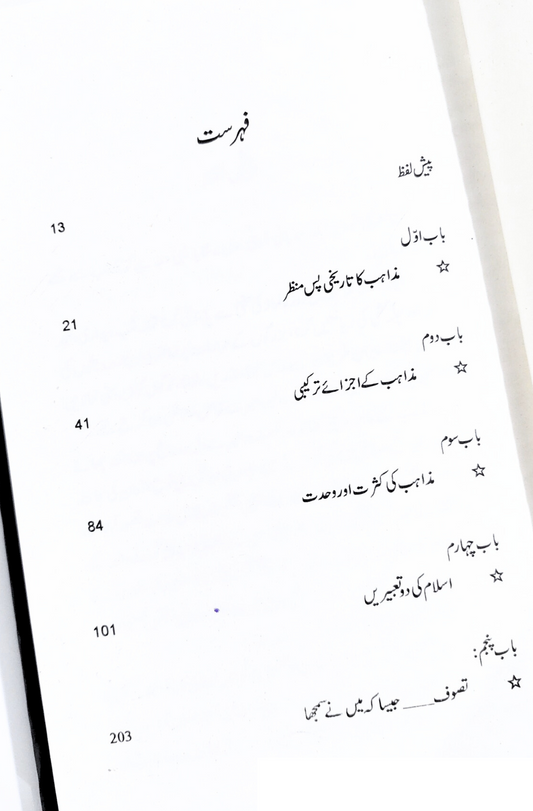 فہرست
پیش لفظ
13
باب اوّل
☆ مذاہب کا تاریخی پس منظر
21
باب دوم
☆ مذاہب کے اجزائے ترکیبی
41
باب سوم
☆ مذاہب کی کثرت اور وحدت
84
باب چہارم
☆ اسلام کی دو تعبیریں
101
باب پنجم:
☆ تصوف ____ جیسا کہ میں نے سمجھا
203